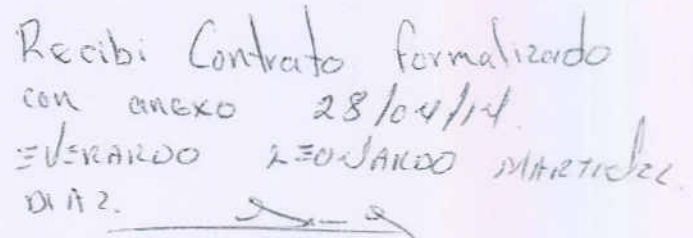 Recibi Contrato formalizado
con anexo 28/04/14.
EVERARDO LEONARDO MARTINEZ
DIAZ.